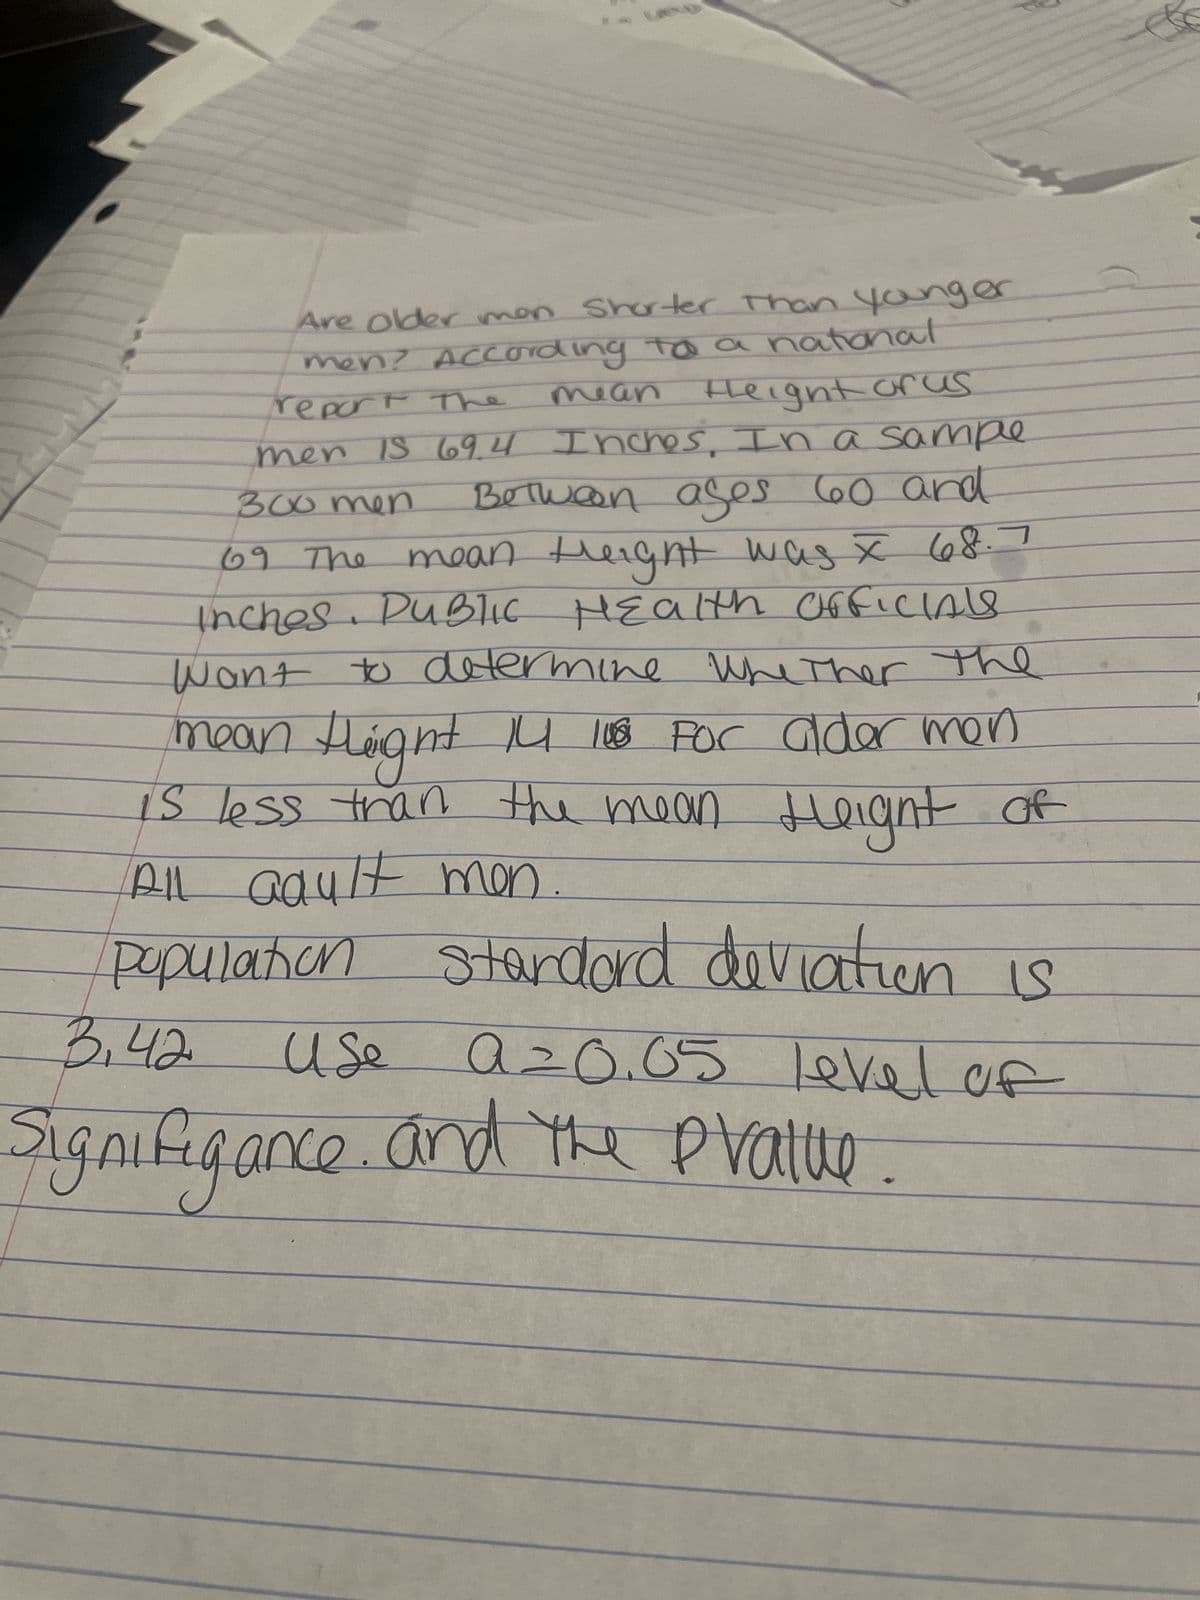 Are older men Shorter Than younger
men? According to a national
report The mean Height of us
men IS 69.4 Inches. In a sample
300 men Between ages 60 and
69 The mean Height was x̄ 68.7
inches. PuBlic HEalth officials
Want to determine Whether the
mean Height M For older men
is less than the mean Height of
All adult men.
population standard deviation is
3.42 use a=0.05 level of
Signifigance. and The Pvalue.